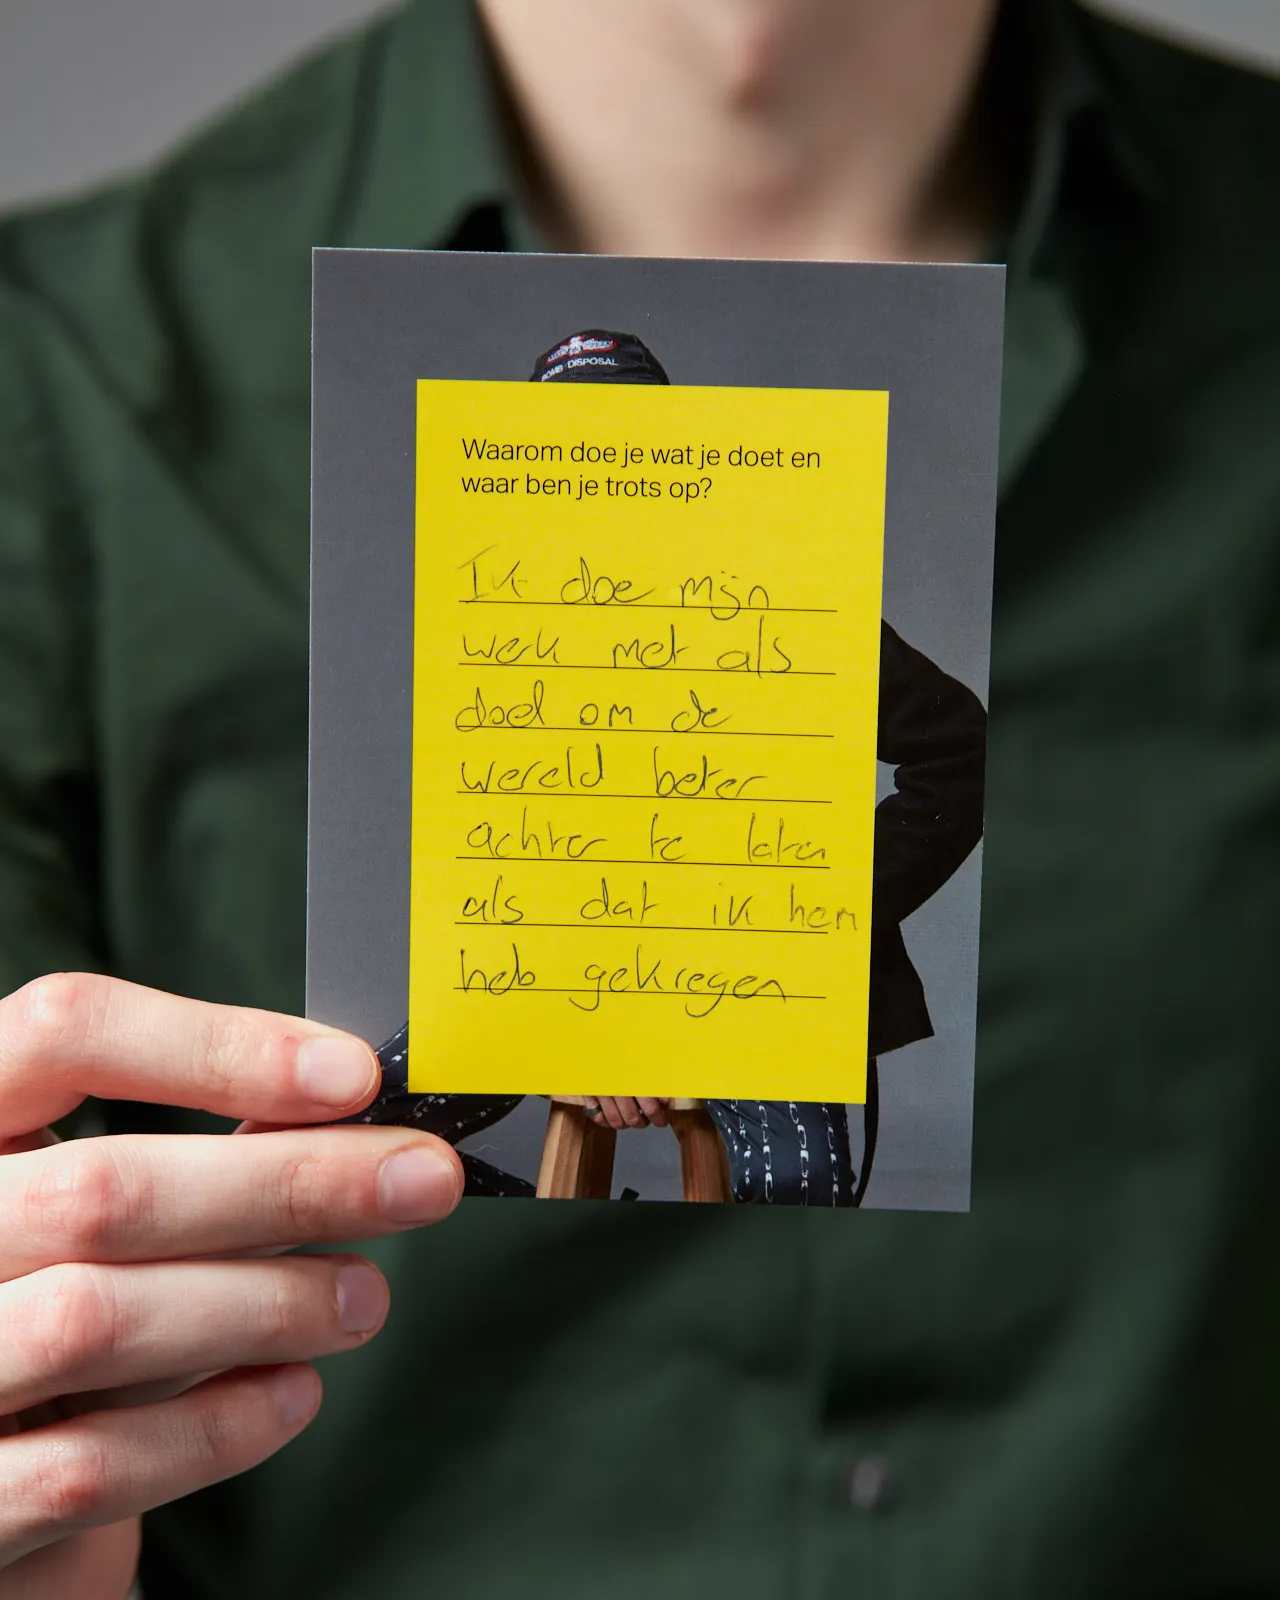 BOMB DISPOSAL
Waarom doe je wat je doet en
waar ben je trots op?
Ik doe mijn
werk met als
doel om de
wereld beter
achter te laten
als dat ik hem
heb gekregen